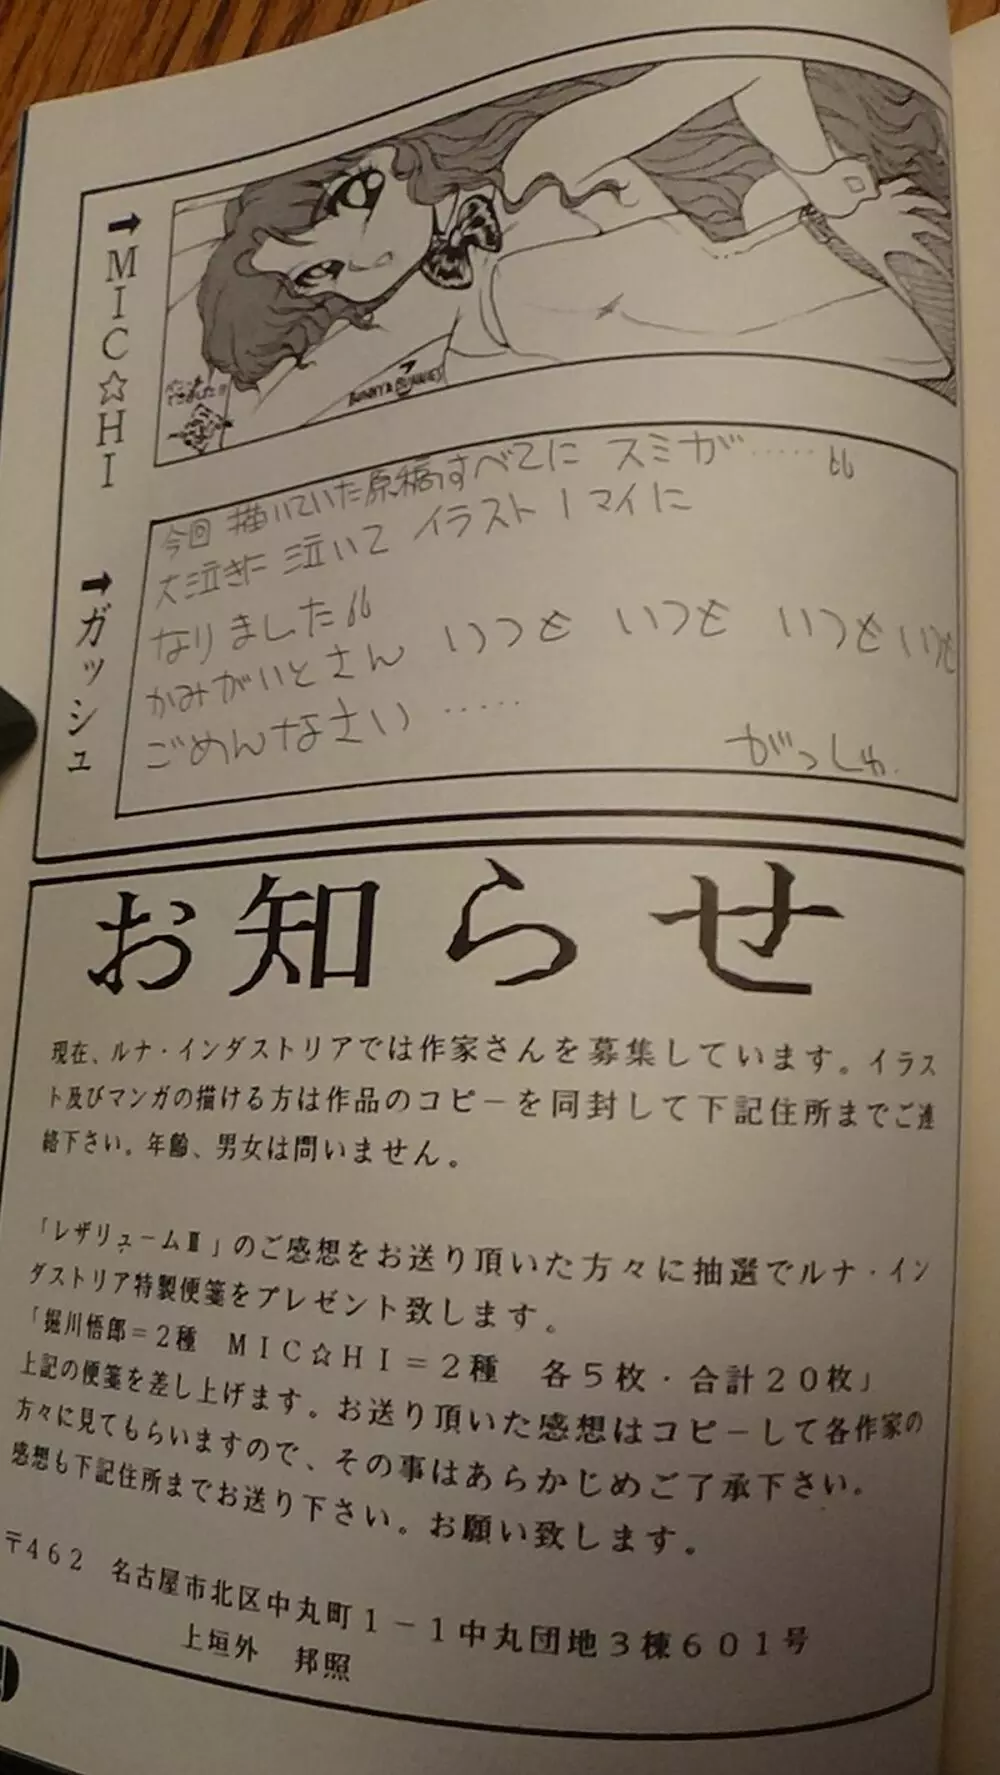 ➡MIC☆HI
➡ガッシュ
BUNNY & BUNNIES
今回 描いていた原稿すべてに スミが……
大泣きに 泣いて イラスト1マイに
なりました
かみがいとさん いつも いつも いつも いつも
ごめんなさい……
がっしゅ.
お知らせ
現在、ルナ・インダストリアでは作家さんを募集しています。イラス
ト及びマンガの描ける方は作品のコピーを同封して下記住所までご連
絡下さい。年齢、男女は問いません。
「レザリュームⅢ」のご感想をお送り頂いた方々に抽選でルナ・イン
ダストリア特製便箋をプレゼント致します。
「堀川悟郎=2種 MIC☆HI=2種 各5枚・合計20枚」
上記の便箋を差し上げます。お送り頂いた感想はコピーして各作家の
方々に見てもらいますので、その事はあらかじめご了承下さい。
感想も下記住所までお送り下さい。お願い致します。
〒462 名古屋市北区中丸町1-1中丸団地3棟601号
上垣外 邦照